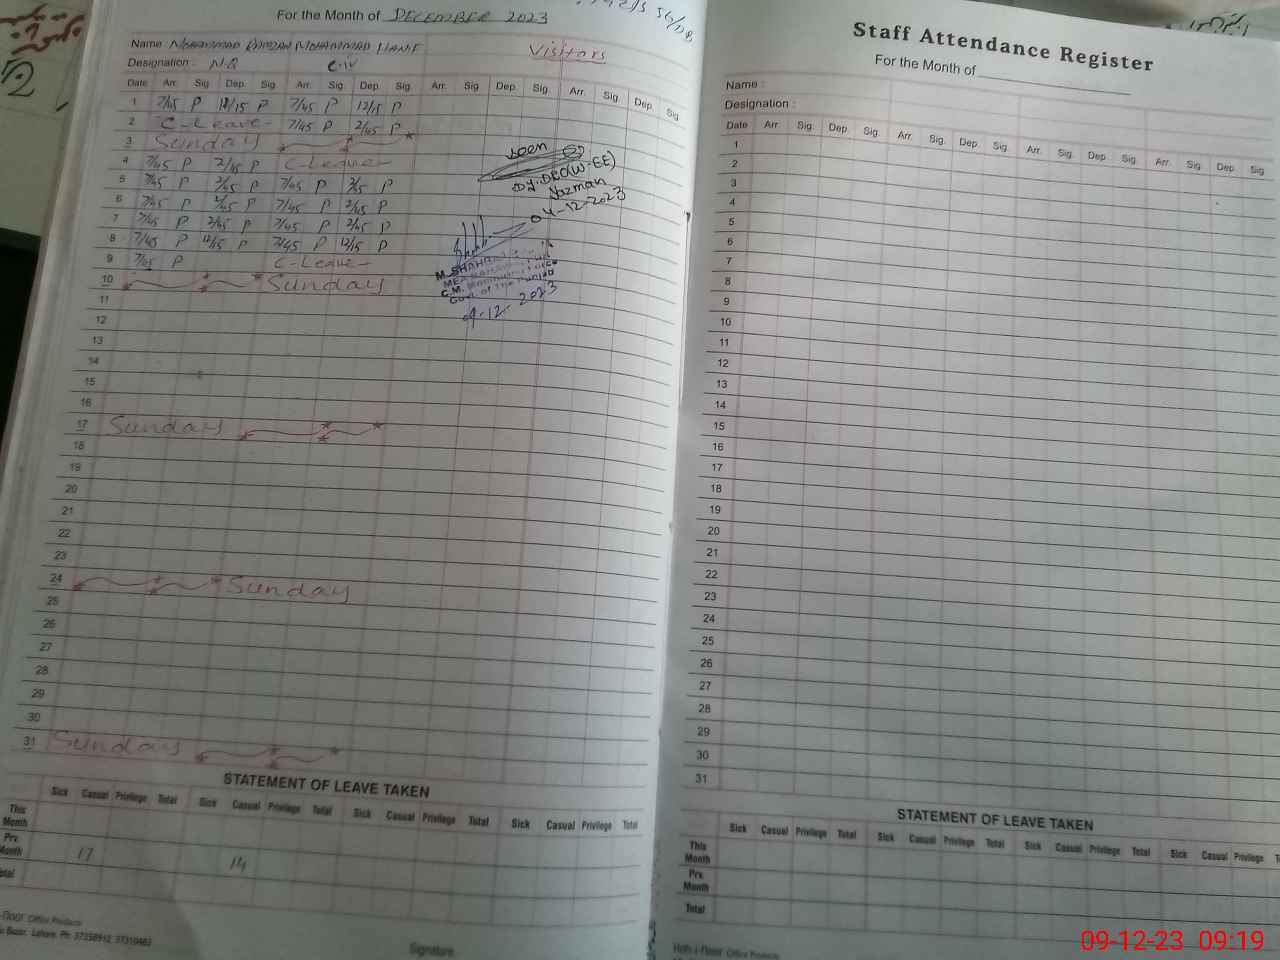 For the Month of DECEMBER 2023
Name MOHAMMAD RAMZAN MOHAMMAD HANIF Visitors
Designation : N.Q C-IV
Date Arr. Sig. Dep. Sig. Arr. Sig. Dep. Sig. Arr. Sig. Dep. Sig. Arr. Sig. Dep. Sig.
1 7/45 P 12/15 P 7/45 P 12/15 P
2 C-Leave- 7/45 P 2/45 P
3 Sunday
4 7/45 P 2/45 P C-Leave-
5 7/45 P 2/45 P 7/45 P 2/45 P
6 7/45 P 2/45 P 7/45 P 2/45 P
7 7/45 P 2/45 P 7/45 P 2/45 P
8 7/45 P 12/15 P 7/45 P 12/15 P
9 7/45 P C-Leave-
10 Sunday
11
12
13
14
15
16
17 Sunday
18
19
20
21
22
23
24 Sunday
25
26
27
28
29
30
31 Sunday
seen
DY.DEO(W-EE)
Yazman
04-12-2023
M. SHAHBAZ
C.M. Monitoring Force
Govt of The Punjab
04-12-2023
STATEMENT OF LEAVE TAKEN
Sick Casual Privilege Total Sick Casual Privilege Total Sick Casual Privilege Total Sick Casual Privilege Total
This Month
Prv. Month 17 14
Total
Office Products
Bazar, Lahore. Ph: 37358912, 37310463
Signature
Staff Attendance Register
For the Month of
Name :
Designation :
Date Arr. Sig. Dep. Sig. Arr. Sig. Dep. Sig. Arr. Sig. Dep. Sig. Arr. Sig. Dep. Sig.
1
2
3
4
5
6
7
8
9
10
11
12
13
14
15
16
17
18
19
20
21
22
23
24
25
26
27
28
29
30
31
STATEMENT OF LEAVE TAKEN
Sick Casual Privilege Total Sick Casual Privilege Total Sick Casual Privilege Total Sick Casual Privilege
This Month
Prv. Month
Total
Office Products
09-12-23 09:19